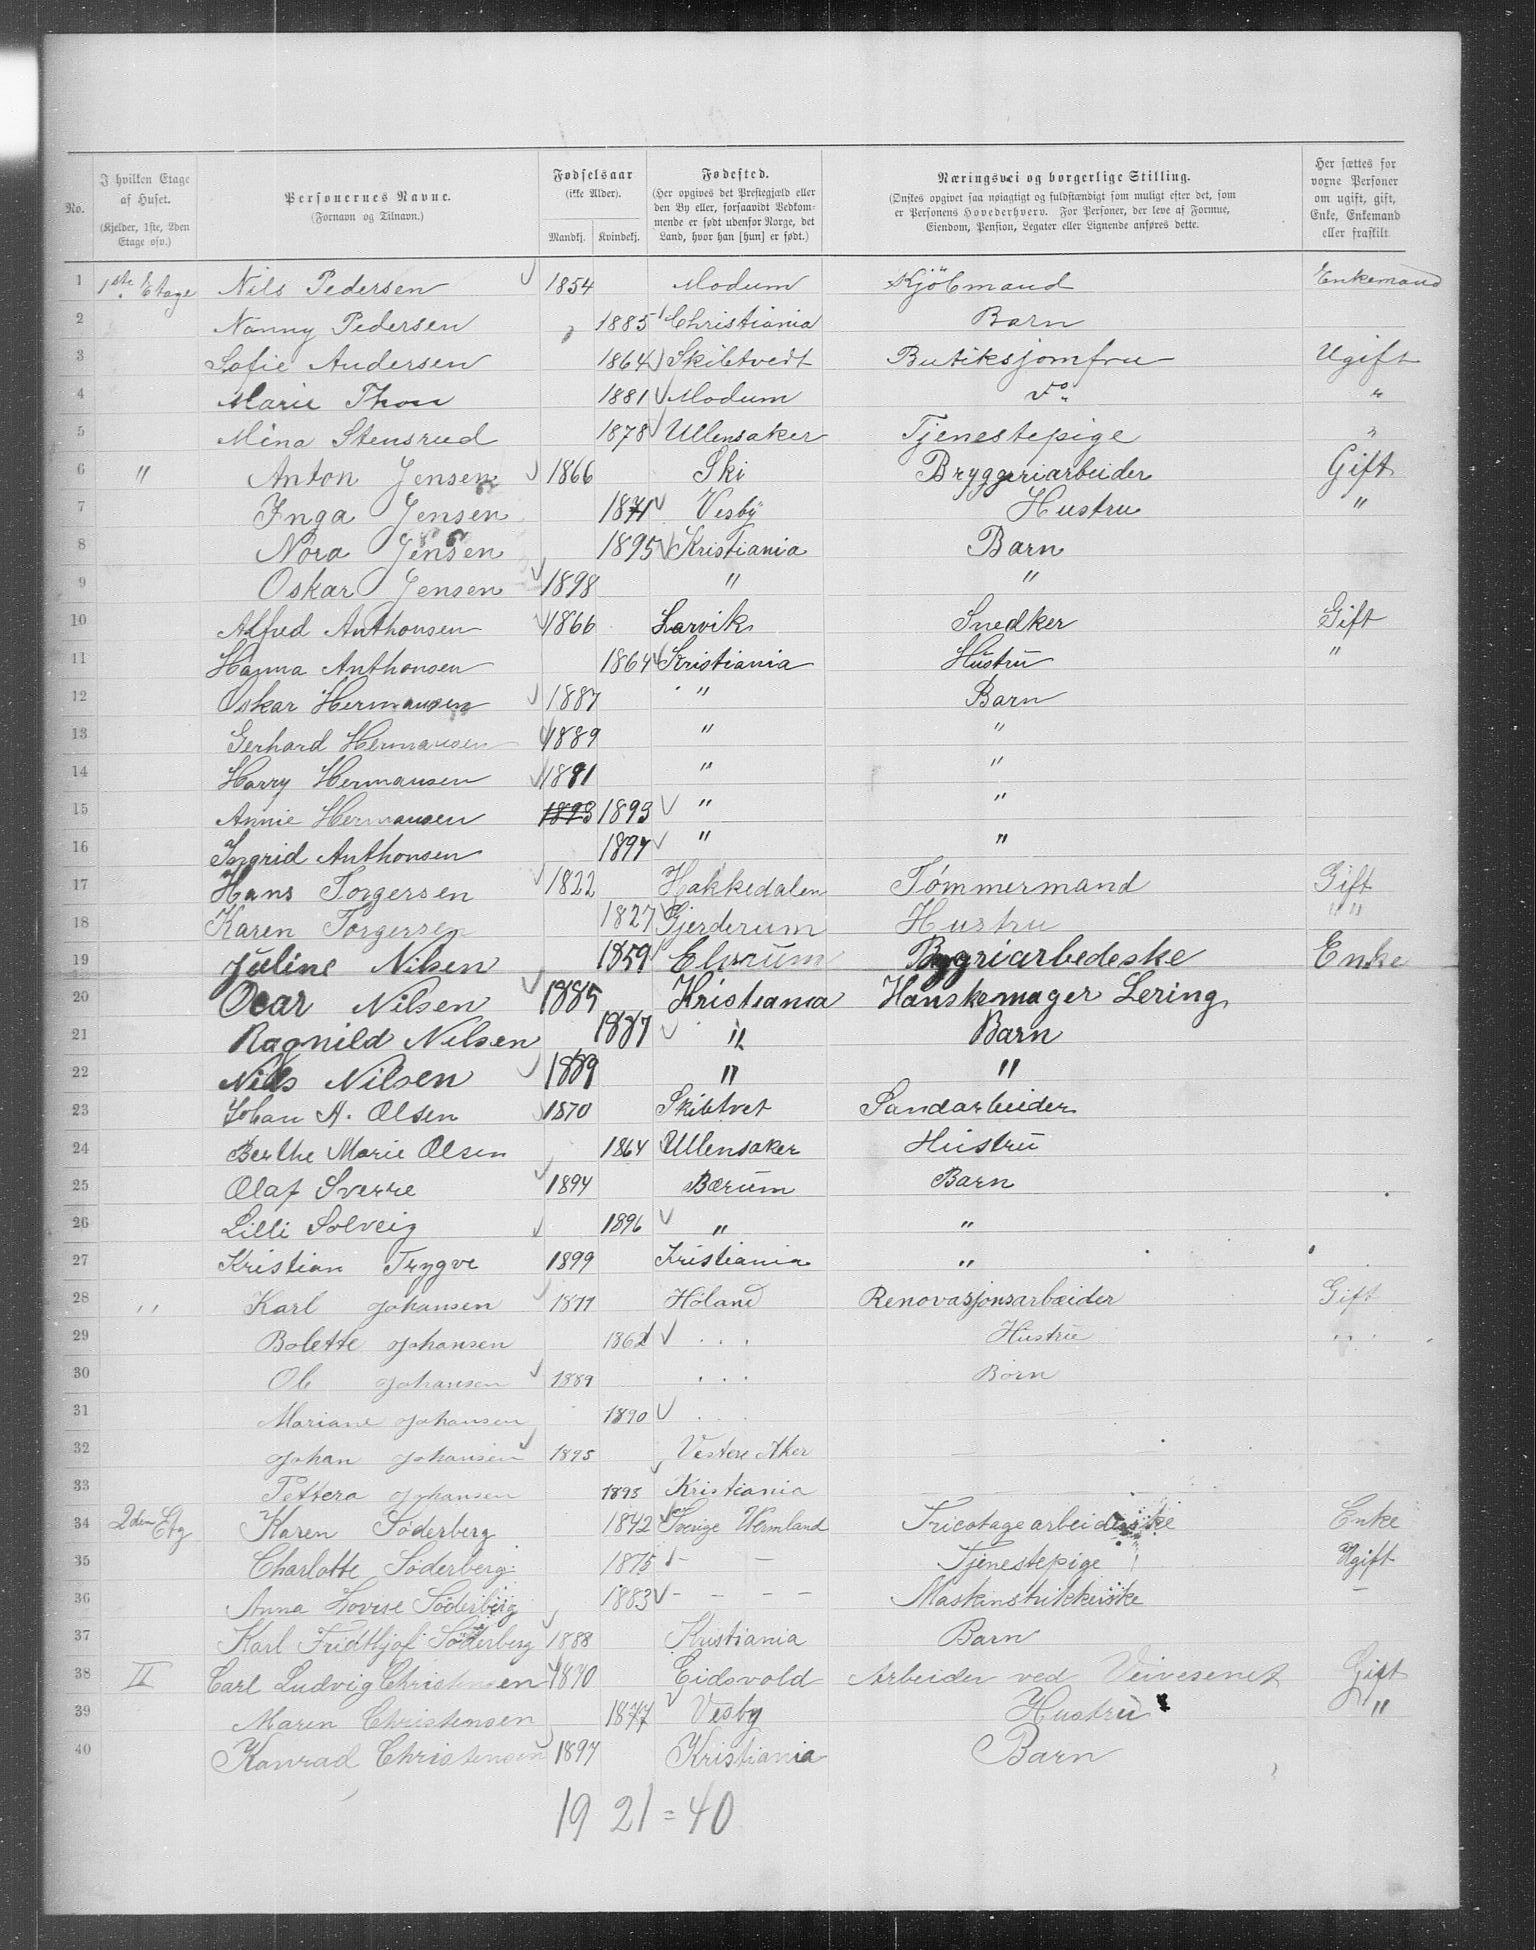 No.	I hvilken Etage af Huset. (Kjelder, 1ste, 2den Etage osv.)	Personernes Navne. (Fornavn og Tilnavn.)	Fødselsaar (ikke Alder). Mandkj. Kvindekj.	Fødested. (Her opgives det Prestegjæld eller den By eller, forsaavidt Vedkommende er født udenfor Norge, det Land, hvor han [hun] er født.)	Næringsvei og borgerlige Stilling. (Ønskes opgivet saa nøiagtigt og fuldstændigt som muligt efter det, som er Personens Hovederhverv. For Personer, der leve af Formue, Eiendom, Pension, Legater eller Lignende anføres dette.)	Her sættes for voxne Personer om ugift, gift, Enke, Enkemand eller fraskilt.
1 1ste Etage Nils Pedersen 1854 Modum Kjöbmand Enkemand
2 Nanny Pedersen 1885 Christiania Barn
3 Sofie Andersen 1864 Skibtvedt Butiksjomfru Ugift
4 Marie Thon 1881 Modum do "
5 Mina Stensrud 1878 Ullensaker Tjenestepige "
6 " Anton Jensen 1866 Ski Bryggeriarbeider Gift
7 Inga Jensen 1871 Vesby Hustru "
8 Nora Jensen 1895 Kristiania Barn
9 Oskar Jensen 1898 " "
10 Alfred Anthonsen 1866 Larvik Snedker Gift
11 Hanna Anthonsen 1864 Kristiania Hustru "
12 Oskar Hermansen 1887 " Barn
13 Gerhard Hermansen 1889 " "
14 Harry Hermansen 1891 " "
15 Annie Hermansen 1893 1893 " "
16 Ingrid Anthonsen 1897 " "
17 Hans Torgersen 1822 Hakkedalen Tømmermand Gift
18 Karen Torgersen 1827 Gjerderum Hustru " "
19 Juline Nilsen 1859 Elvrum Bygriarbedeske Enke
20 Ocar Nilsen 1885 Kristiania Hanskemager Lering
21 Ragnild Nilsen 1887 " Barn
22 Nils Nilsen 1889 " "
23 Johan A. Olsen 1870 Skibtvet Sandarbeider
24 Berthe Marie Olsen 1864 Ullensaker Hustru
25 Olaf Sverre 1894 Bærum Barn
26 Lilli Solveig 1896 " "
27 Kristian Trygve 1899 Kristiania "
28 " Karl Johansen 1871 Höland Renovasjonsarbæider Gift
29 Bolette Johansen 1862 . . . Hustru " .
30 Ole Johansen 1889 . . . Börn
31 Mariane Johansen 1890 . . .
32 Johan Johansen 1895 Vestere Aker
33 Pettera Johansen 1895 Kristiania
34 2den Etg Karen Söderberg 1842 Sverige Wermland Tricotagearbeiderske Enke
35 Charlotte Söderberg 1875 - - Tjenestepige Ugift
36 Anna Lovise Söderberg 1883 - - - - Maskinstrikkerske -
37 Karl Fridthjof Söderberg 1888 Kristiania Barn
38 II Carl Ludvig Christensen 1870 Eidsvold Arbeider ved Veivesenet Gift
39 Maren Christensen 1877 Vesby Hustru "
40 Konrad Christensen 1897 Kristiania Barn
19 21 = 40